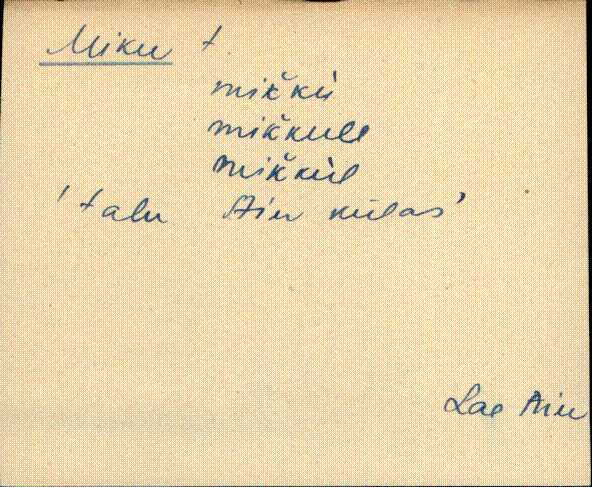 Miku t.
mik̆kù
mik̆kule
mik̆kùl
'talu Aiu külas'
Lae Aiu